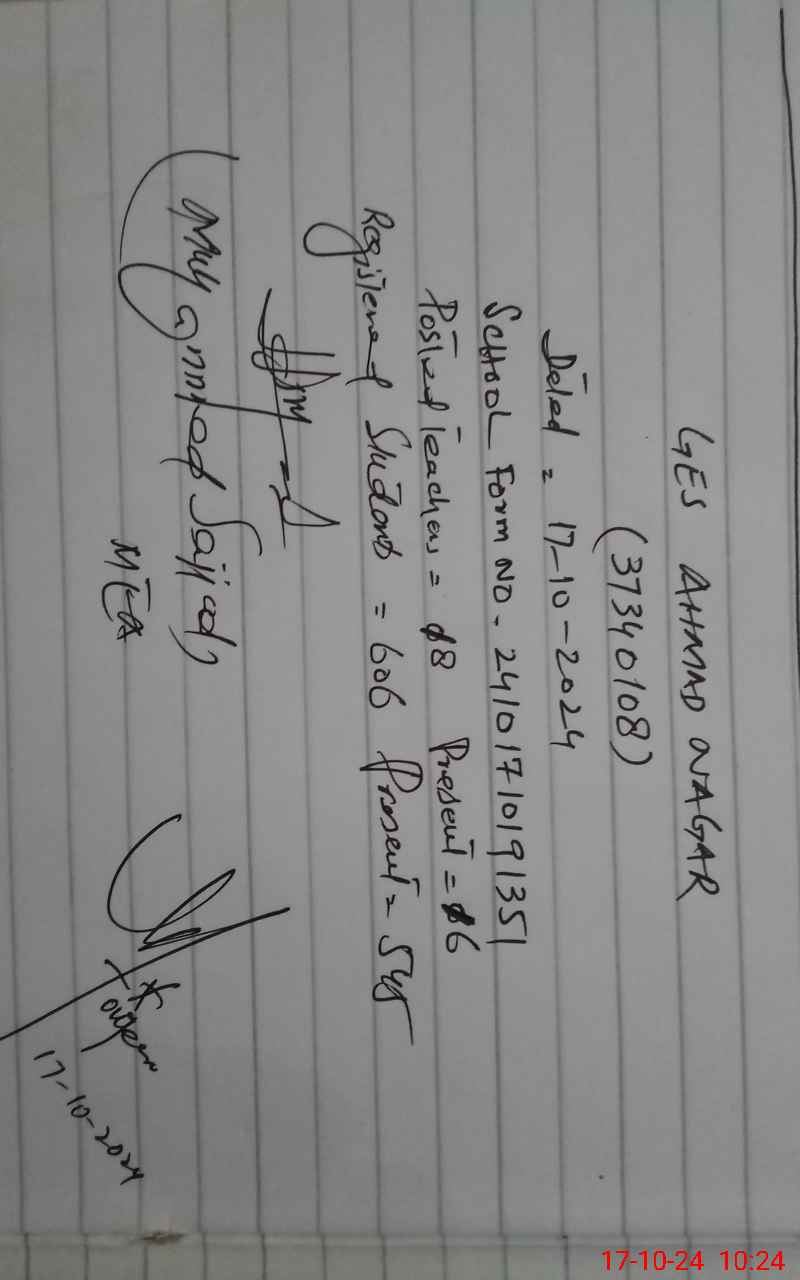 GES AHMAD NAGAR
(37340108)
Dated = 17-10-2024
School Form No. 24101710191351
Posted Teachers = 18 Present = 16
Registered Students = 606 Present = 545
(Muhammad Sajjad)
MEA
17-10-2024
17-10-24 10:24